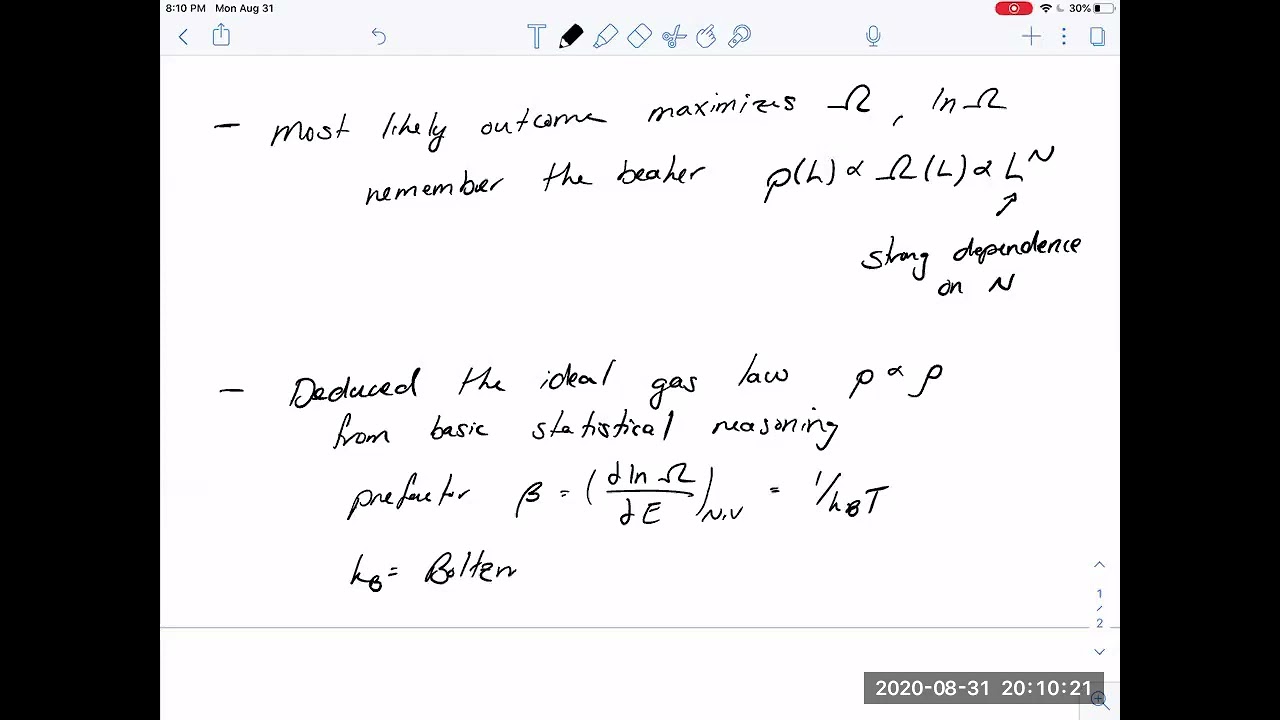 8:10 PM Mon Aug 31 30%
T
- most likely outcome maximizes Ω, ln Ω
remember the beaker p(L) ∝ Ω(L) ∝ L^N
strong dependence
on N
- Deduced the ideal gas law p ∝ ρ
from basic statistical reasoning
prefactor β = (∂ ln Ω / ∂E)_N,V = 1/k_B T
k_B = Boltzm
1
/
2
2020-08-31 20:10:21